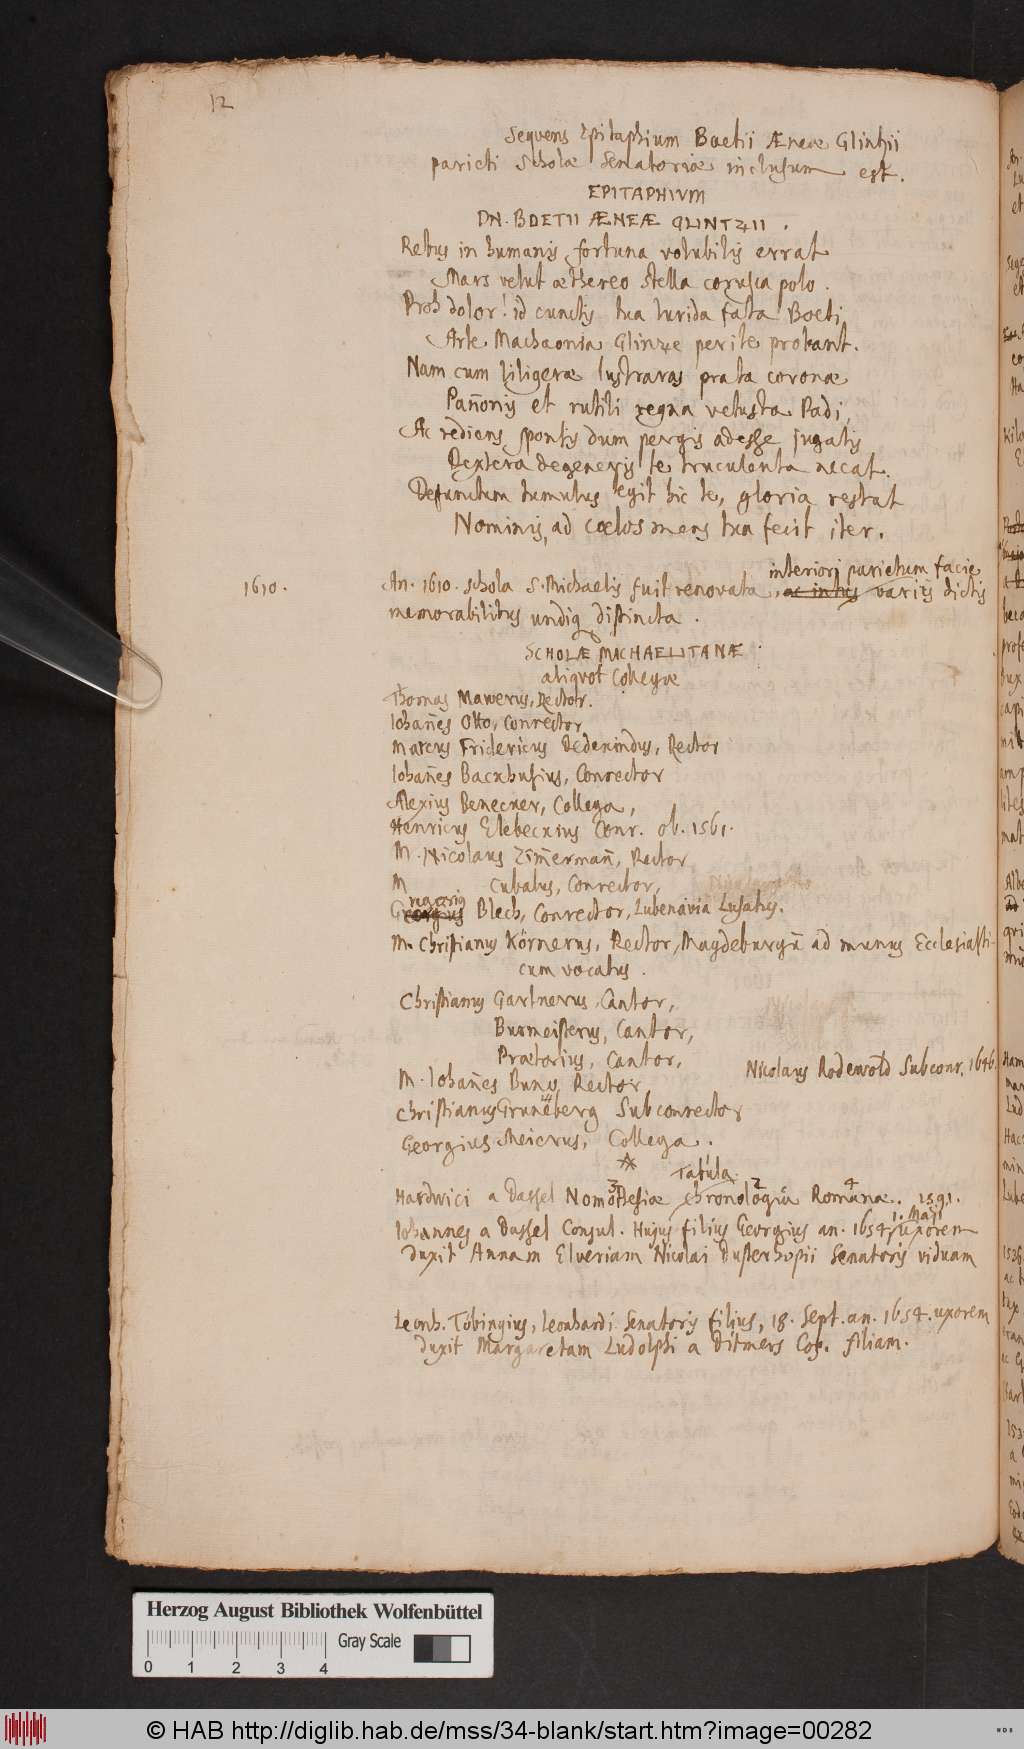 12
Sequens Epitaphium Boetii Æneæ Glintzii
parieti scholæ Senatoriæ inclusum est.
EPITAPHIVM
DN. BOETII ÆNEÆ GLINTZII.
Rebus in humanis fortuna volubilis errat
Mars velut æthereo stella corusca polo.
Proh dolor! id cunctis tua lurida fata Boeti,
Arte Machaonia Glinze perite probant.
Nam cum liligeræ lustraras prata coronæ
Pan̄onis et rutili regna vetusta Padi,
Ac rediens sponsis dum pergis adesse jugatis
Dextera degeneris te truculenta necat.
Defunctum tumulus tegit hic te, gloria restat
Nominis, ad cœlos mens tua fecit iter.
interiori parietum facie
1610. An. 1610. schola S. Michaelis fuit renovata, ac intus variis dictis
memorabilibus undiq distincta.
SCHOLÆ MICHAELITANÆ
aliqvot Collegæ
Thomas Mawerus, Rector.
Iohan̄es Otto, Conrector
Marcus Fridericus Dedenindus, Rector
Iohan̄es Backhusius, Conrector
Alexius Benecker, Collega,
Henricus Elebeckius Conr. ob. 1561.
M. Nicolaus Zim̄erman̄, Rector
M Cubabus, Conrector,
Georgius Blech, Conrector, Lubenavia Lusatus.
M. Christianus Körnerus, Rector, Magdeburgū ad munus Ecclesiasti-
cum vocatus.
Christianus Gartnerus Cantor,
Burmeisterus, Cantor,
Prætorius, Cantor,
Nicolaus Rodewold Subconr. 1646.
M. Iohan̄es Bunus, Rector,
Christianus Gruneberg Subconrector
Georgius Meierus, Collega.
Tabula
3 2 4
Hardwici a Dassel Nomothesiæ chronologia Romanæ. 1591.
1. Maji
Iohannes a Dassel Consul. Hujus filius Georgius an. 1654 uxorem
duxit Annam Elveriam Nicolai Dusterhopii Senatoris viduam
Leonh. Töbingius, Leonhardi Senatoris filius, 18. Sept. an. 1654. uxorem
duxit Margaretam Ludolphi a Ditmers Cos. filiam.
Herzog August Bibliothek Wolfenbüttel
Gray Scale
0 1 2 3 4
© HAB http://diglib.hab.de/mss/34-blank/start.htm?image=00282